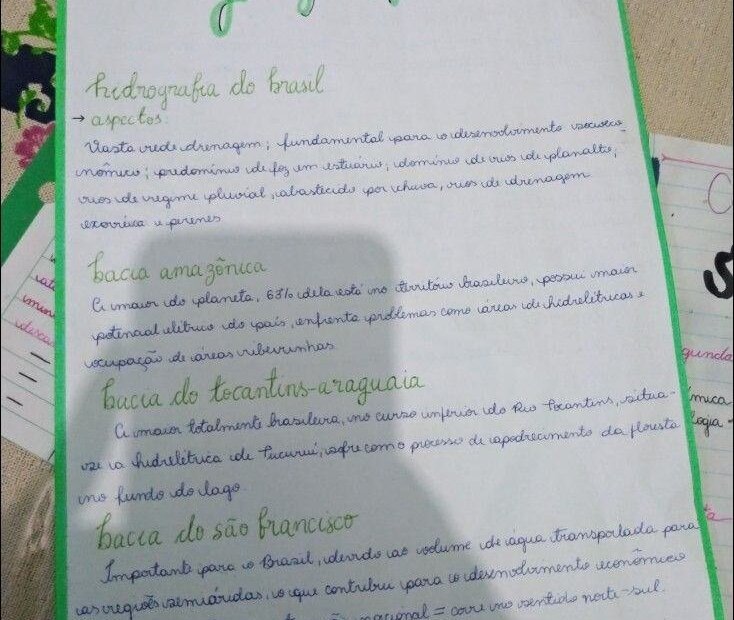 hidrografia do brasil
→ aspectos:
Vasta rede drenagem; fundamental para o desenvolvimento socioeco-
nômico; predomínio de foz em estuário; domínio de rios de planalto;
rios de regime pluvial, abastecido por chuva, rios de drenagem
exorréica e perenes
bacia amazônica
A maior do planeta, 63% dela está no território brasileiro, possui maior
potencial elétrico do país, enfrenta problemas como áreas de hidrelétricas e
ocupação de áreas ribeirinhas
bacia do tocantins-araguaia
A maior totalmente brasileira, no curso inferior do Rio Tocantins, situa-
se a hidrelétrica de Tucuruí, sofre com o processo de apodrecimento da floresta
no fundo do lago.
bacia do são francisco
Importante para o Brasil, devido ao volume de água transportada para
as regiões semiáridas, o que contribui para o desenvolvimento econômico
nacional = corre no sentido norte-sul.
gunda
mica
logia